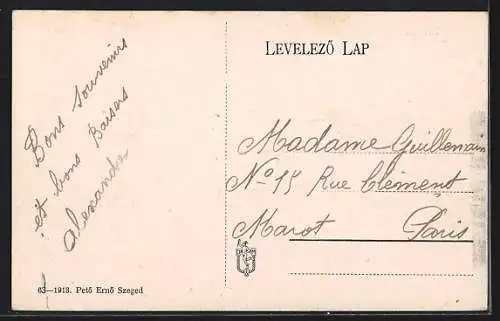 Bons souvenirs
et bons Baisers
alexandre
LEVELEZŐ LAP
Madame Guillemain
No 15 Rue Clément
Marot Paris
63—1913. Pető Ernő Szeged